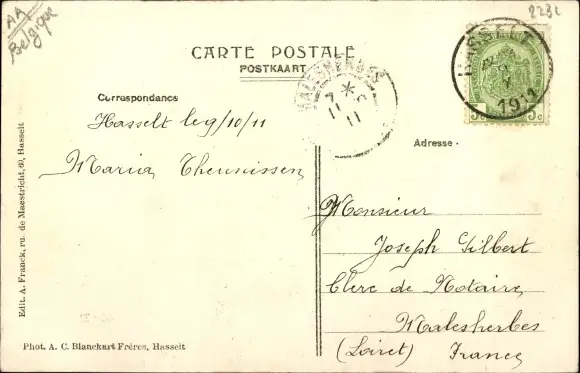 AA
Belgique
223L
CARTE POSTALE
POSTKAART
HASSELT
1911
MALESHERBES
7 *
11
11
5 c
5 c
Correspondance
Adresse
Hasselt le 9/10/11
Maria Theunissen
Monsieur
Joseph Gilbert
Clerc de Notaire
Malesherbes
(Loiret) France
Edit. A. Franck, ru. de Maestricht, 60, Hasselt
Phot. A. C. Blanckart Frères, Hasselt